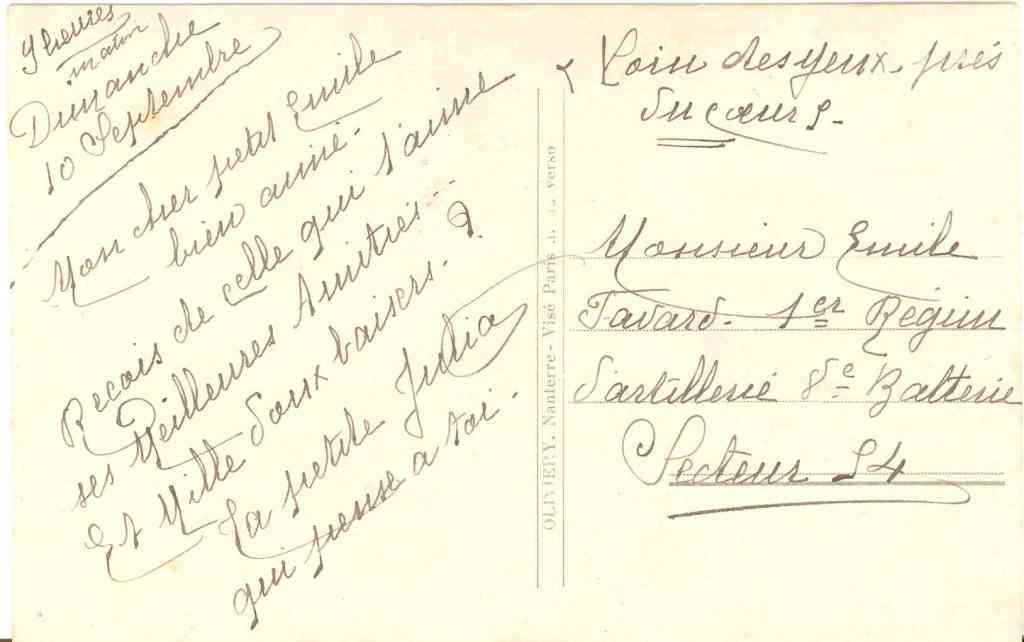 9 heures
matin
Dimanche
10 Septembre
Mon cher petit Emile
bien aimé-
Recois de celle qui t'aime
ses Meilleures Amitiés...
Et Mille doux baisers.
Ta petite Julia
qui pense a toi.
Loin des yeux près
du cœurs-
Monsieur Emile
Favard. 1er Régim
d'artillerie 8e Batterie
Secteur 54
OLIVIERY. Nanterre - Visé Paris verso